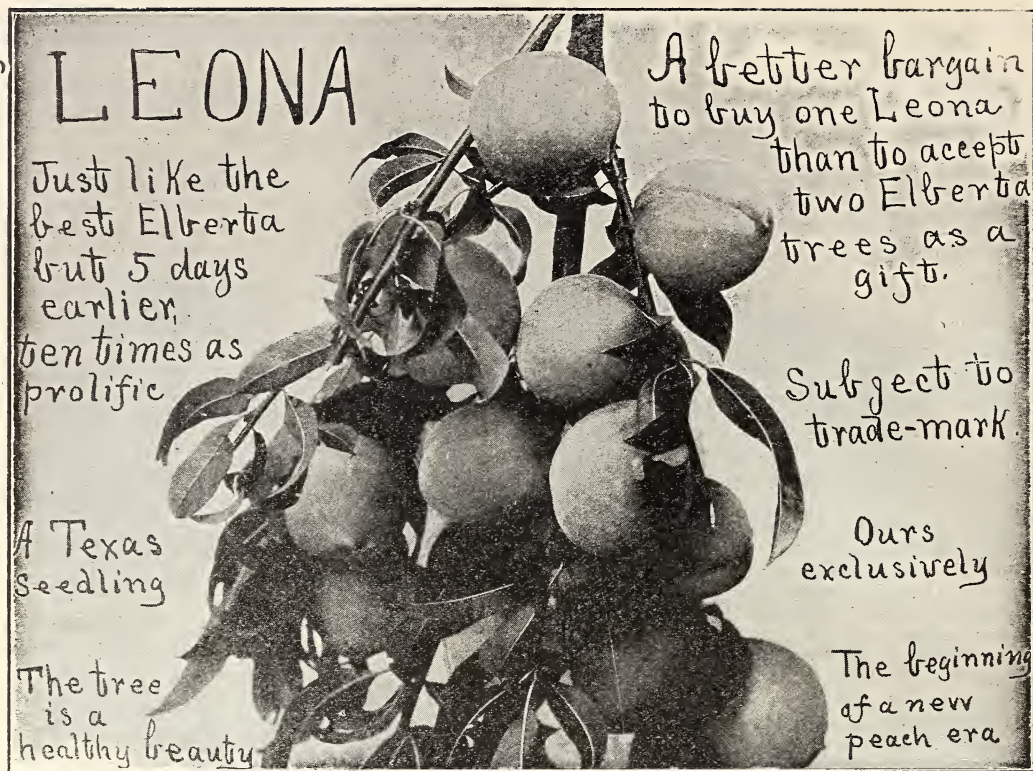 LEONA
Just like the
best Elberta
but 5 days
earlier,
ten times as
prolific
A Texas
Seedling
The tree
is a
healthy beauty
A better bargain
to buy one Leona
than to accept
two Elberta
trees as a
gift.
Subject to
trade-mark.
Ours
exclusively
The beginning
of a new
peach era